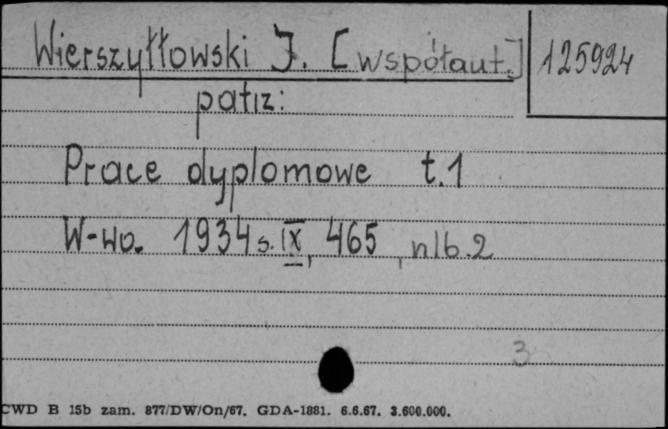 Wierszyłłowski J. [współaut.] 125924
patrz:
Prace dyplomowe t.1
W-wa. 1934 s. IX, 465, nlb. 2
3
CWD B 15b zam. 877/DW/On/67. GDA-1881. 6.6.67. 3.600.000.